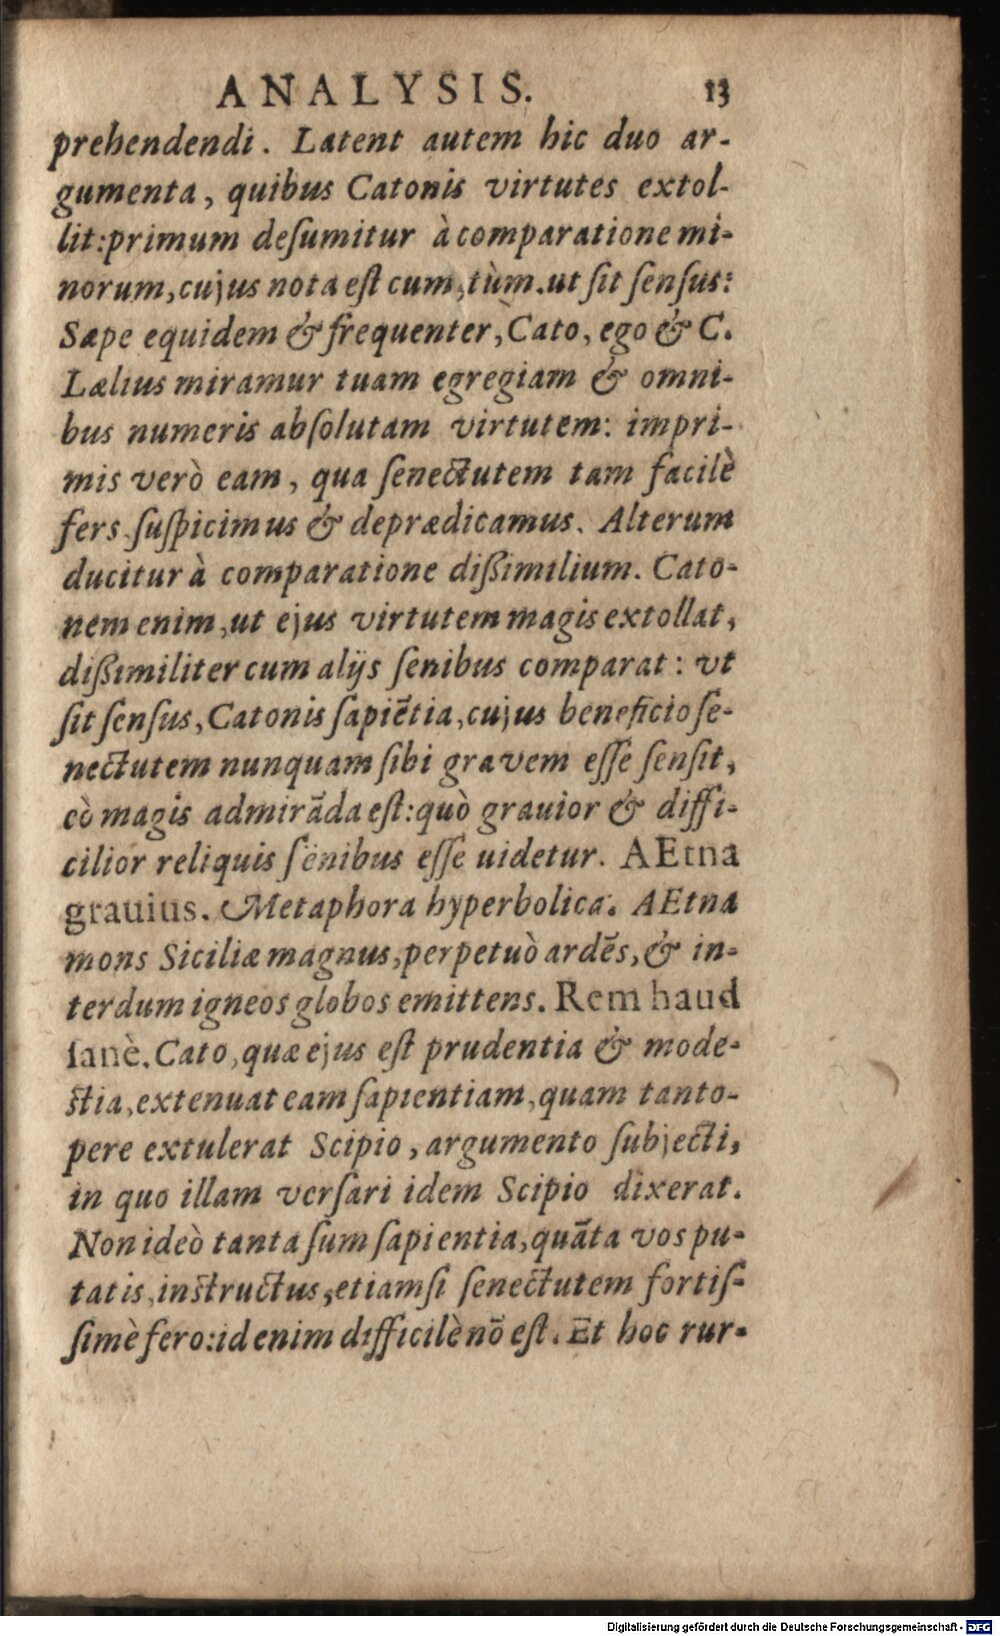 ANALYSIS. 13
prehendendi. Latent autem hic duo ar-
gumenta, quibus Catonis virtutes extol-
lit: primum deſumitur à comparatione mi-
norum, cujus nota eſt cum, tùm. ut ſit ſenſus:
Sæpe equidem & frequenter, Cato, ego & C.
Lælius miramur tuam egregiam & omni-
bus numeris abſolutam virtutem: impri-
mis verò eam, qua ſenectutem tam facilè
fers ſuſpicimus & deprædicamus. Alterum
ducitur à comparatione dißimilium. Cato-
nem enim, ut ejus virtutem magis extollat,
dißimiliter cum alijs ſenibus comparat: vt
ſit ſenſus, Catonis ſapiẽtia, cujus beneficio ſe-
nectutem nunquam ſibi gravem eſſe ſenſit,
eò magis admirãda eſt: quò grauior & diffi-
cilior reliquis ſenibus eſſe uidetur. AEtna
grauius. Metaphora hyperbolica. AEtna
mons Siciliæ magnus, perpetuò ardẽs, & in-
terdum igneos globos emittens. Rem haud
ſanè. Cato, quæ ejus eſt prudentia & mode-
ſtia, extenuat eam ſapientiam, quam tanto-
pere extulerat Scipio, argumento ſubjecti,
in quo illam verſari idem Scipio dixerat.
Non ideò tanta ſum ſapientia, quãta vos pu-
tatis, inſtructus, etiamſi ſenectutem fortiſ-
ſimè fero: id enim difficilè nõ eſt. Et hoc rur-
Digitalisierung gefördert durch die Deutsche Forschungsgemeinschaft - DFG